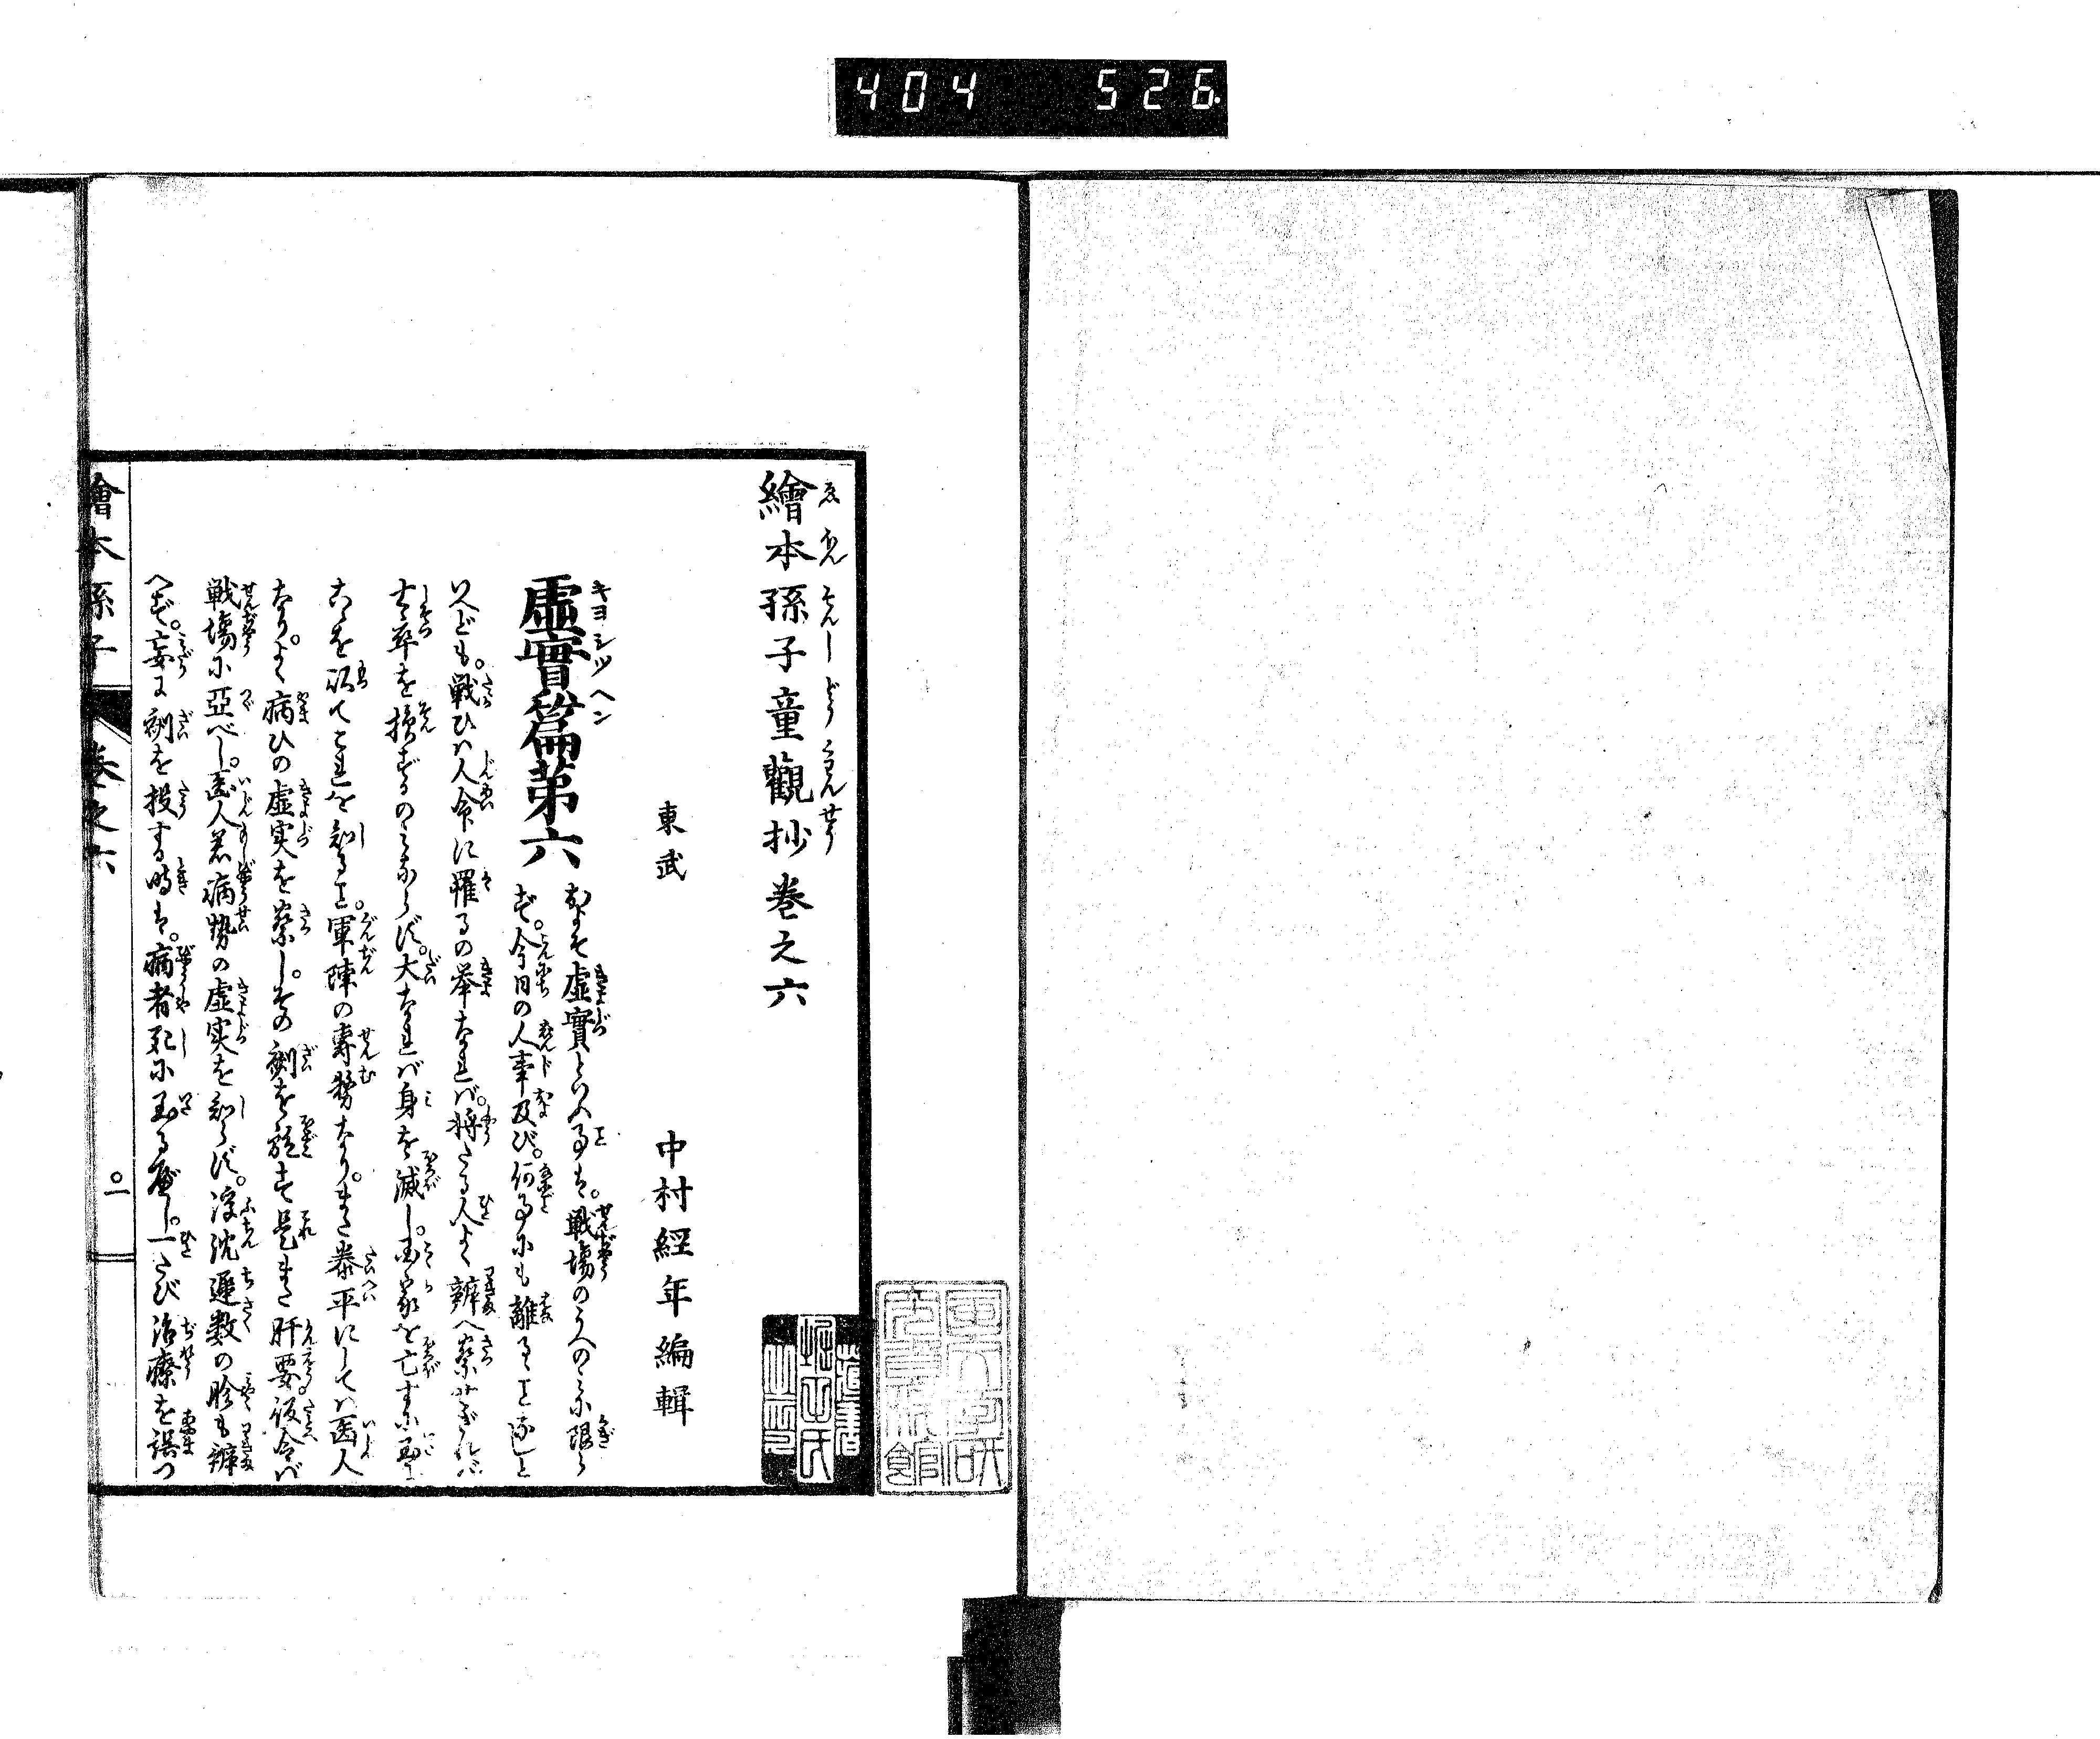 404 526
繪本孫子童觀抄巻之六
東武 中村經年編輯
虚實篇第六 およそ虚實といふ事は。戦場のうへのみに限ら
ず。今日の人事及び。何事にも離るゝこと
いへども。戦ひは人命に罹るの挙なれば。将たる人よく辨へ察せざれば
士卒を損ずるのみならず。大なれば身を滅し。国家を亡すに至る
てこれを知ること。軍陣の専務なり。また泰平にしては医人
なり。よく病ひの虚実を察し。その剤を施す是また肝要仮令ば
戦場に亞べし。医人若病勢の虚実を知らず。浮沈遲数の脉も辨
へず。妄に剤を投する時は。病者死に至る べし。一たび治療を誤つ
繪本孫子 巻之六 〇一